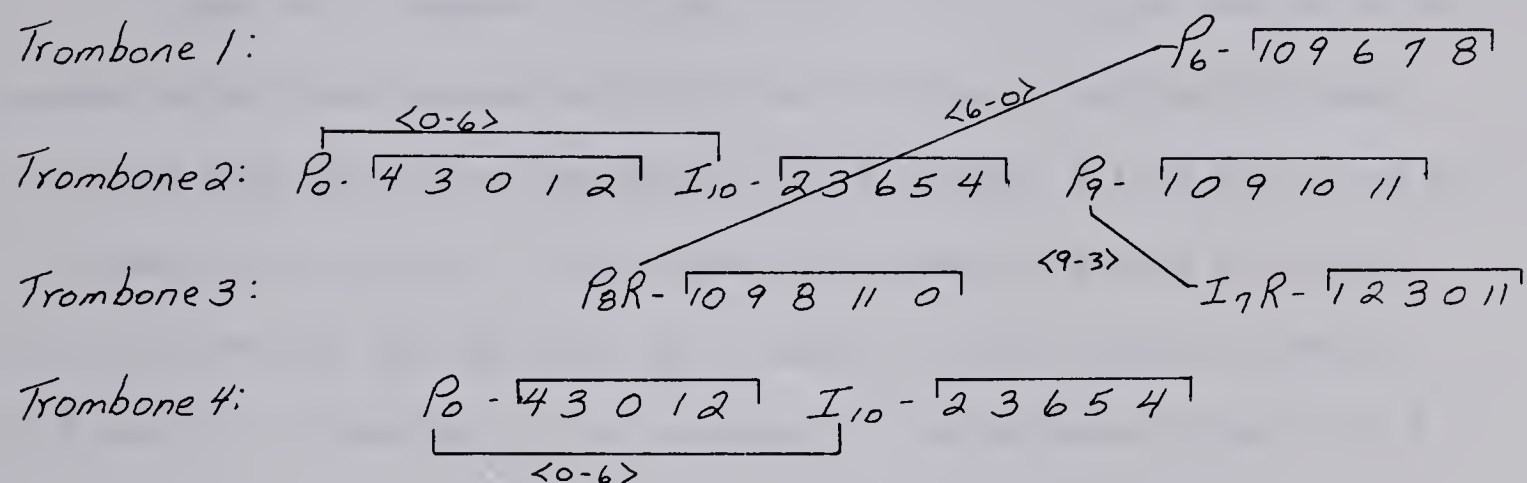 Trombone 1: P6- 10 9 6 7 8
<0-6> <6-0>
Trombone 2: P0- 4 3 0 1 2 I10- 2 3 6 5 4 P9- 1 0 9 10 11
<9-3>
Trombone 3: P8R- 10 9 8 11 0 I7R- 1 2 3 0 11
Trombone 4: P0- 4 3 0 1 2 I10- 2 3 6 5 4
<0-6>